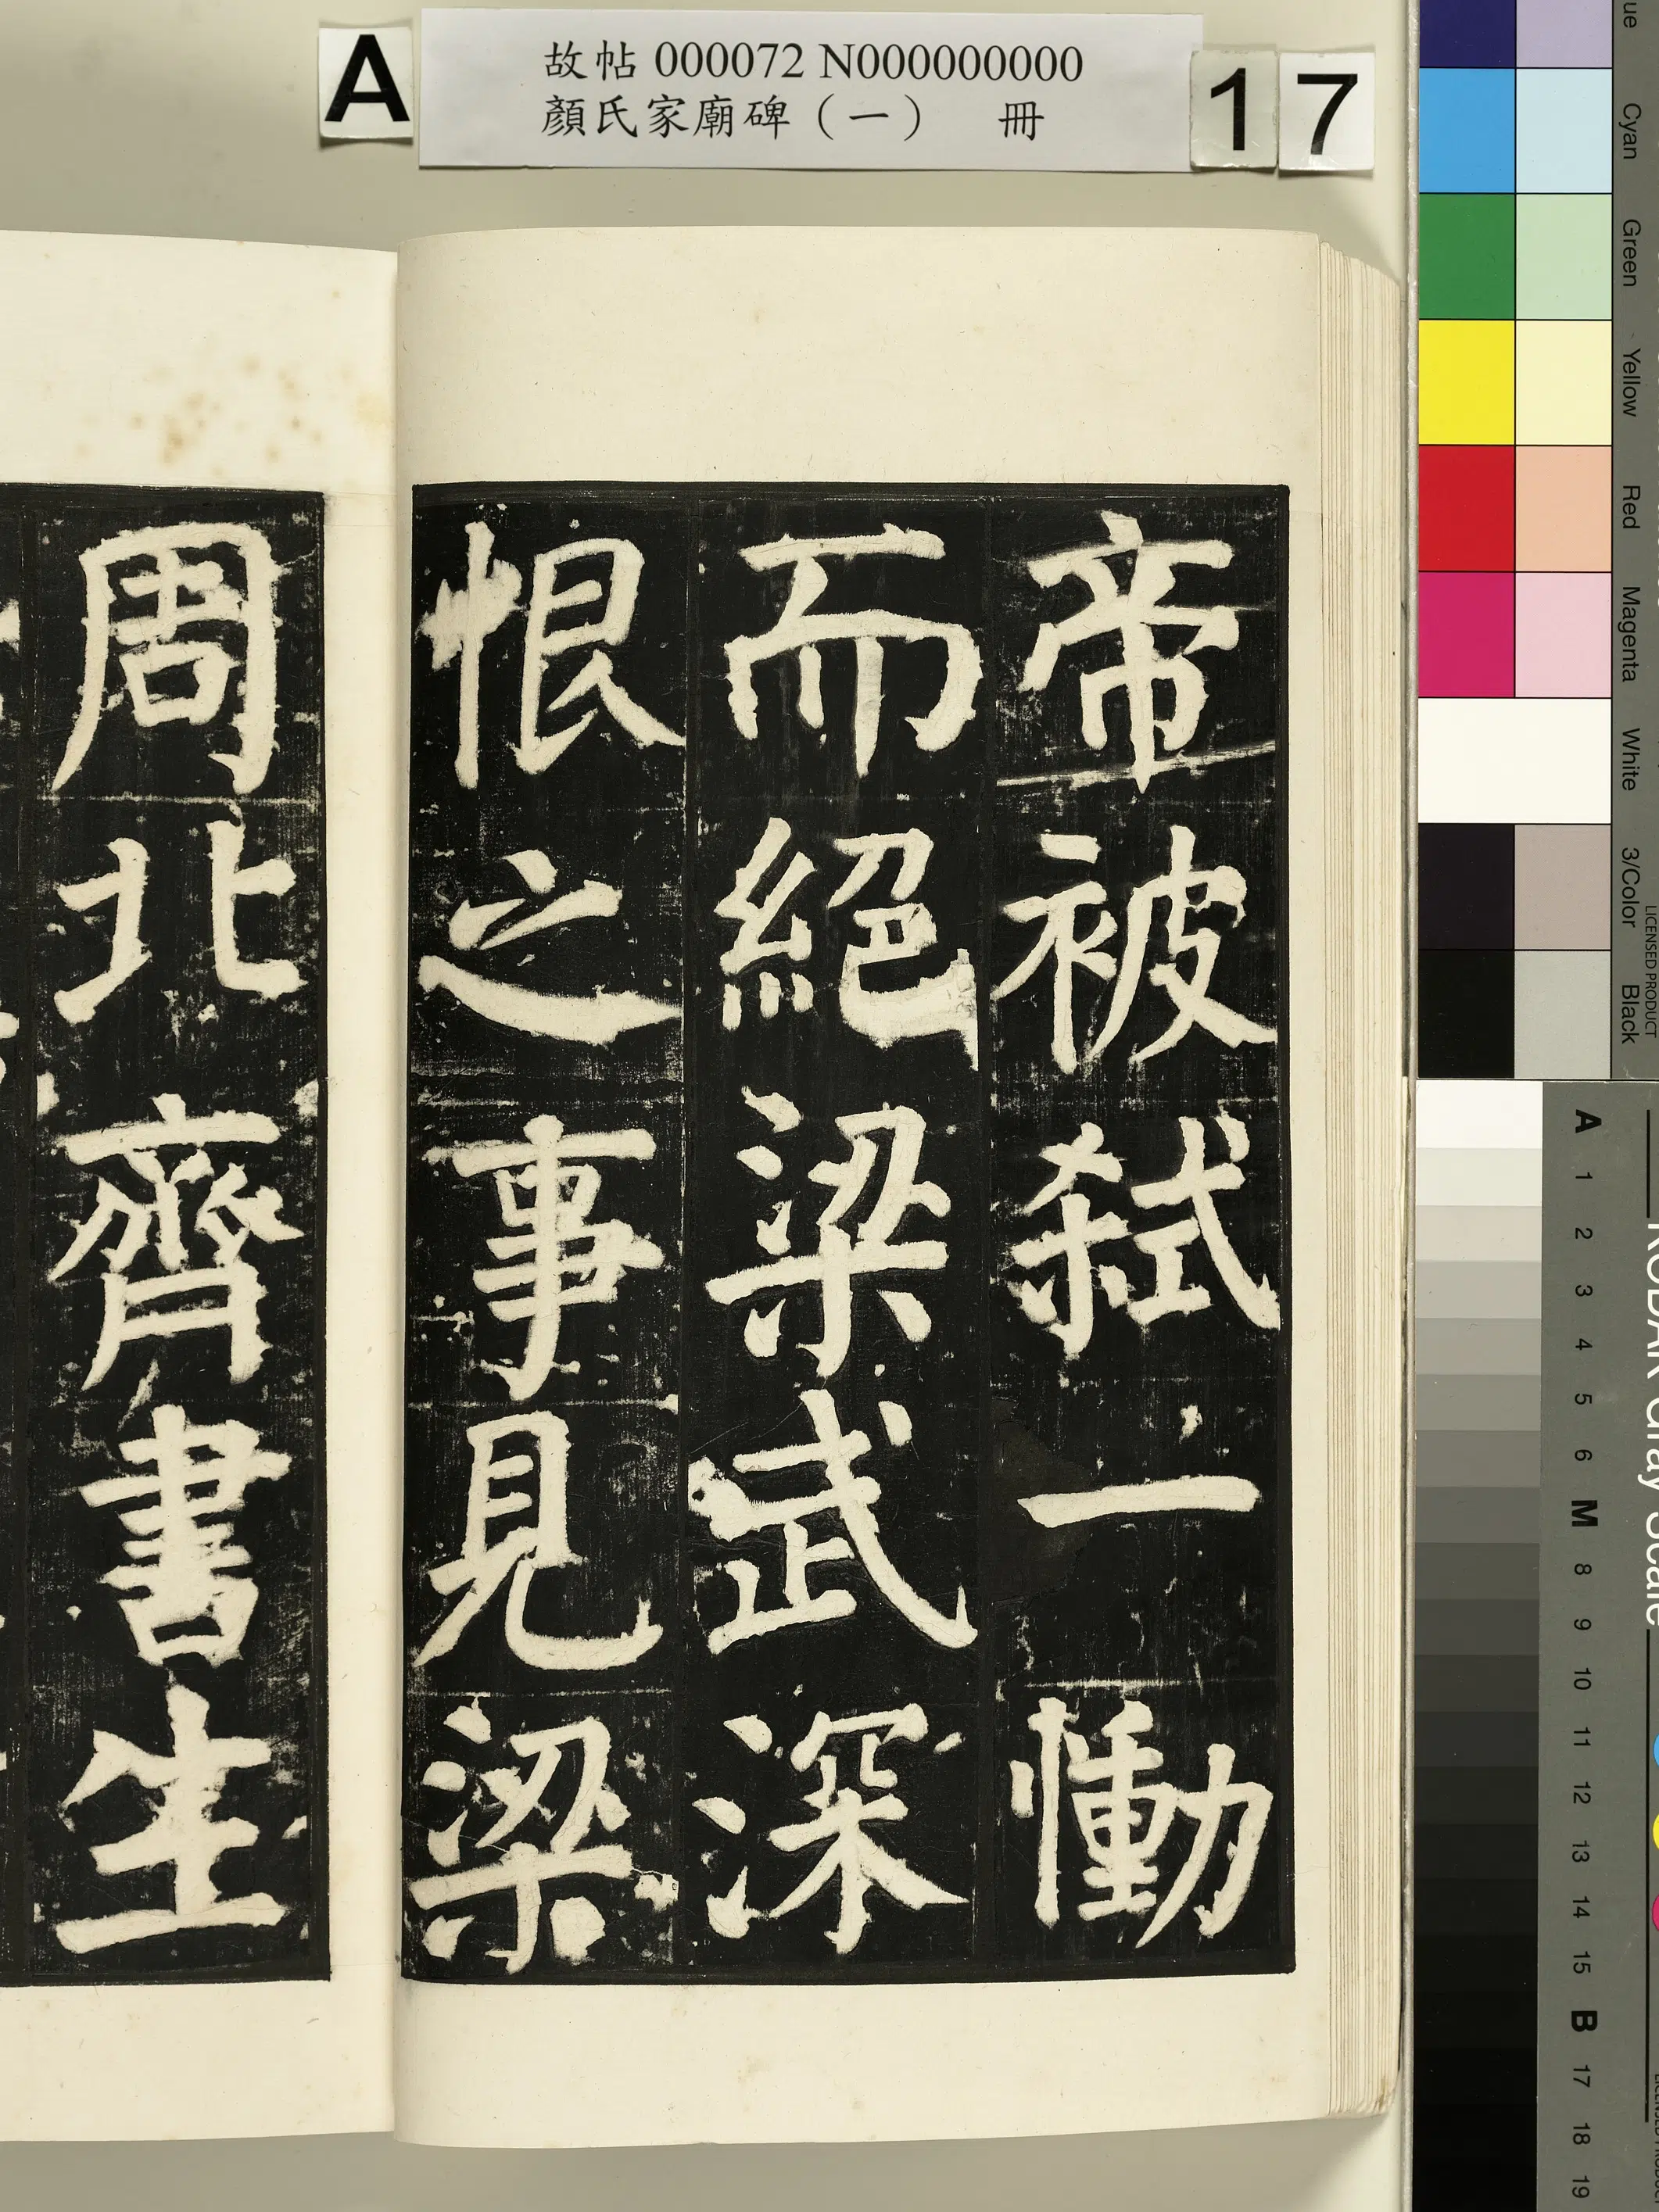 A
故帖 000072 N000000000
顏氏家廟碑（一） 冊
17
帝被弒一慟
而絕梁武深
恨之事見梁
周北齊書生
Cyan
Green
Yellow
Red
Magenta
White
3/Color
Black
LICENSED PRODUCT
KODAK Gray Scale
A 1 2 3 4 5 6 M 8 9 10 11 12 13 14 15 B 17 18 19